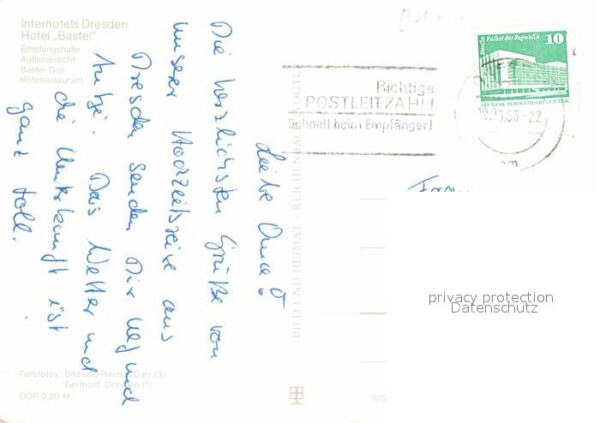 Interhotels Dresden
Hotel „Bastei"
Empfangshalle
Außenansicht
Bastei-Grill
Hotelrestaurant
Liebe Oma!
Die herzlichsten Grüße von
unserer Hochzeitsreise aus
Dresden senden Dir und
Antje. Das Wetter und
die Unterkunft ist
ganz toll.
Farbfotos: Bild und Heimat Darr (3)
Berthold, Dresden (1)
DDR 0,20 M
BILD UND HEIMAT REICHENBACH (VOGTL)
Richtige
POSTLEITZAHL!
schnell beim Empfänger!
Berlin Palast der Republik
10
DEUTSCHE DEMOKRATISCHE REPUBLIK
privacy protection
Datenschutz